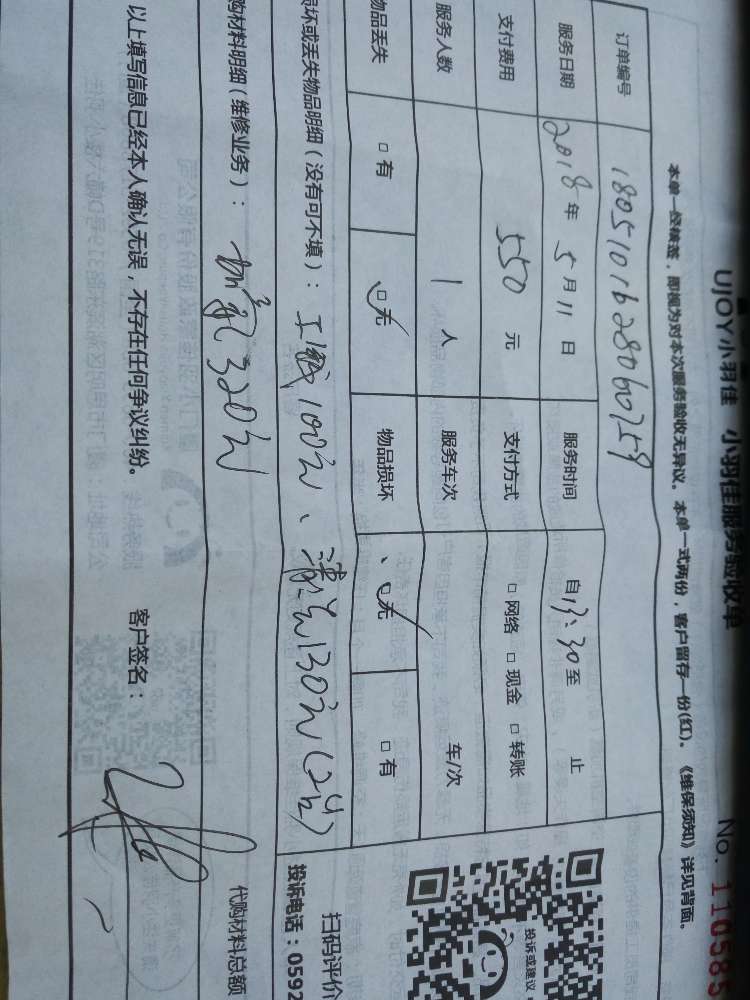 UJOY小羽佳 小羽佳服务验收单
No. 110585
本单一经核签，即视为对本次服务验收无异议。本单一式两份，客户留存一份(红)。《维保须知》详见背面。
订单编号 1805101628060759
服务日期 2018年5月11日 服务时间 自13:30至 止
支付费用 550元 支付方式 □网络 □现金 □转账
服务人数 1人 服务车次 车/次
物品丢失 □有 □无 物品损坏 □无 □有
损坏或丢失物品明细（没有可不填）：工时100元、清洗130元(2台)
购材料明细(维修业务)：加氟320元
代购材料总额
以上填写信息已经本人确认无误，不存在任何争议纠纷。
客户签名：
投诉或建议
扫码评价
投诉电话：0592